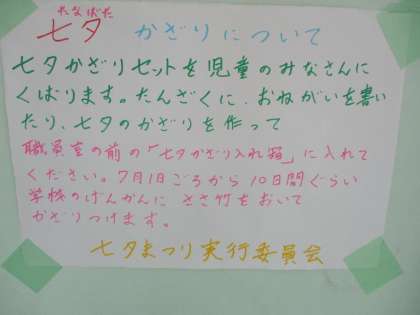 たなばた
七夕 かざりについて
七夕かざりセットを児童のみなさんに
くばります。たんざくに、おねがいを書い
たり、七夕のかざりを作って
職員室の前の「七夕かざり入れ箱」に入れて
ください。7月1日ごろから10日間ぐらい
学校のげんかんに ささ竹をおいて
かざりつけます。
七夕まつり実行委員会